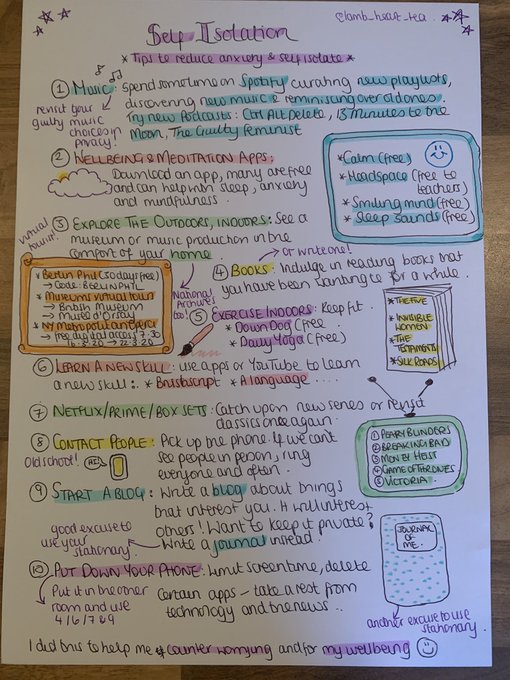 @lamb_heart_tea
Self Isolation
*Tips to reduce anxiety & self isolate*
① Music: Spend some time on Spotify curating new playlists,
discovering new music & reminising over old ones.
Try new Podcasts: Ctrl Alt Delete, 13 Minutes to the
Moon, The Guilty Feminist
revisit your
guilty music
choices in
privacy!
② WELLBEING & MEDITATION APPS:
Download an app, many are free
and can help with sleep, anxiety
and mindfulness.
*Calm (free)
*Headspace (free to
teachers)
*Smiling mind (free)
*Sleep Sounds (free)
③ EXPLORE THE OUTDOORS, INDOORS: See a
museum or music production in the
comfort of your home
virtual
tourist!
National
Archives
too!
*Berlin Phil (30 days free)
→ Code: BERLINPHIL
*Museums virtual tours
→ British Museum
→ Musée d'Orsay
*NY Metropolitan Opera
→ free digital access 7.30
16.3.20 → 22.3.20
or write one!
④ BOOKS: Indulge in reading books that
you have been wanting to for a while.
*THE FIVE
*INVISIBLE
WOMEN
*THE
TESTAMENTS
*SILK ROADS
⑤ EXERCISE INDOORS: Keep fit
*Down Dog (free
*Daily Yoga (free)
⑥ LEARN A NEW SKILL: use apps or YouTube to learn
a new skill: *Brushscript *A language ....
⑦ NETFLIX/PRIME/BOX SETS: Catch up on new series or revisit
classics once again.
① PEAKY BLINDERS
② BREAKING BAD
③ MONEY HEIST
④ GAME OF THRONES
⑤ VICTORIA
⑧ CONTACT PEOPLE: Pick up the phone. If we can't
see people in person, ring
everyone and often.
Old school!
Hi!
⑨ START A BLOG: Write a blog about things
that interest you. It will interest
others! Want to keep it private?
Write a journal instead!
good excuse to
use your
stationary.
JOURNAL
OF
ME.
another excuse to use
stationary.
⑩ PUT DOWN YOUR PHONE: Limit screentime, delete
certain apps - take a rest from
technology and the news...
Put it in the other
room and use
4/6/7 8 9
I did this to help me #counter worrying and for my wellbeing